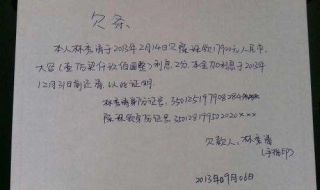 欠条
本人林秀清于2013年2月14日欠陈淑钦17900元人民币
大写(壹万柒仟玖佰圆整)利息,2分,本金加利息于2013年
12月31日前还清,以此证明
身份证号:350125197908284
身份证号:35012819950202
欠款人:林秀清
(手指印)
2013年09月06日